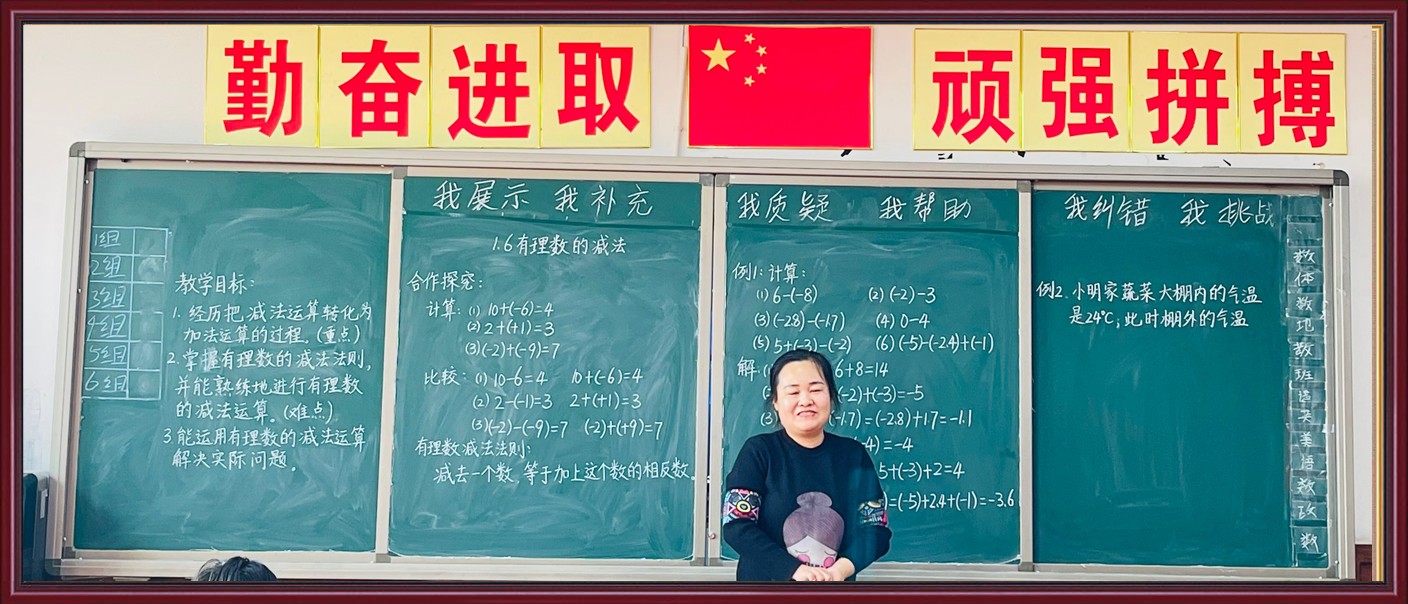 勤奋进取
顽强拼搏
1组
2组
3组
4组
5组
6组
教学目标:
1. 经历把减法运算转化为
加法运算的过程。(重点)
2. 掌握有理数的减法法则,
并能熟练地进行有理数
的减法运算。(难点)
3.能运用有理数的减法运算
解决实际问题。
我展示 我补充
1.6有理数的减法
合作探究:
计算: (1) 10+(-6)=4
(2) 2+(+1)=3
(3)(-2)+(-9)=7
比较: (1) 10-6=4 10+(-6)=4
(2) 2-(-1)=3 2+(+1)=3
(3)(-2)-(-9)=7 (-2)+(+9)=7
有理数减法法则:
减去一个数,等于加上这个数的相反数。
我质疑 我帮助
例1:计算:
(1) 6-(-8) (2) (-2)-3
(3)(-2.8)-(-1.7) (4) 0-4
(5) 5+(-3)-(-2) (6) (-5)-(-2.4)+(-1)
解: 6+8=14
-2)+(-3)=-5
(3) (-1.7)=(-2.8)+1.7=-1.1
-4)=-4
5+(-3)+2=4
)=(-5)+2.4+(-1)=-3.6
我纠错 我挑战
例2. 小明家蔬菜大棚内的气温
是24℃,此时棚外的气温
数
体
数
地
数
班
美
语
数
政
数